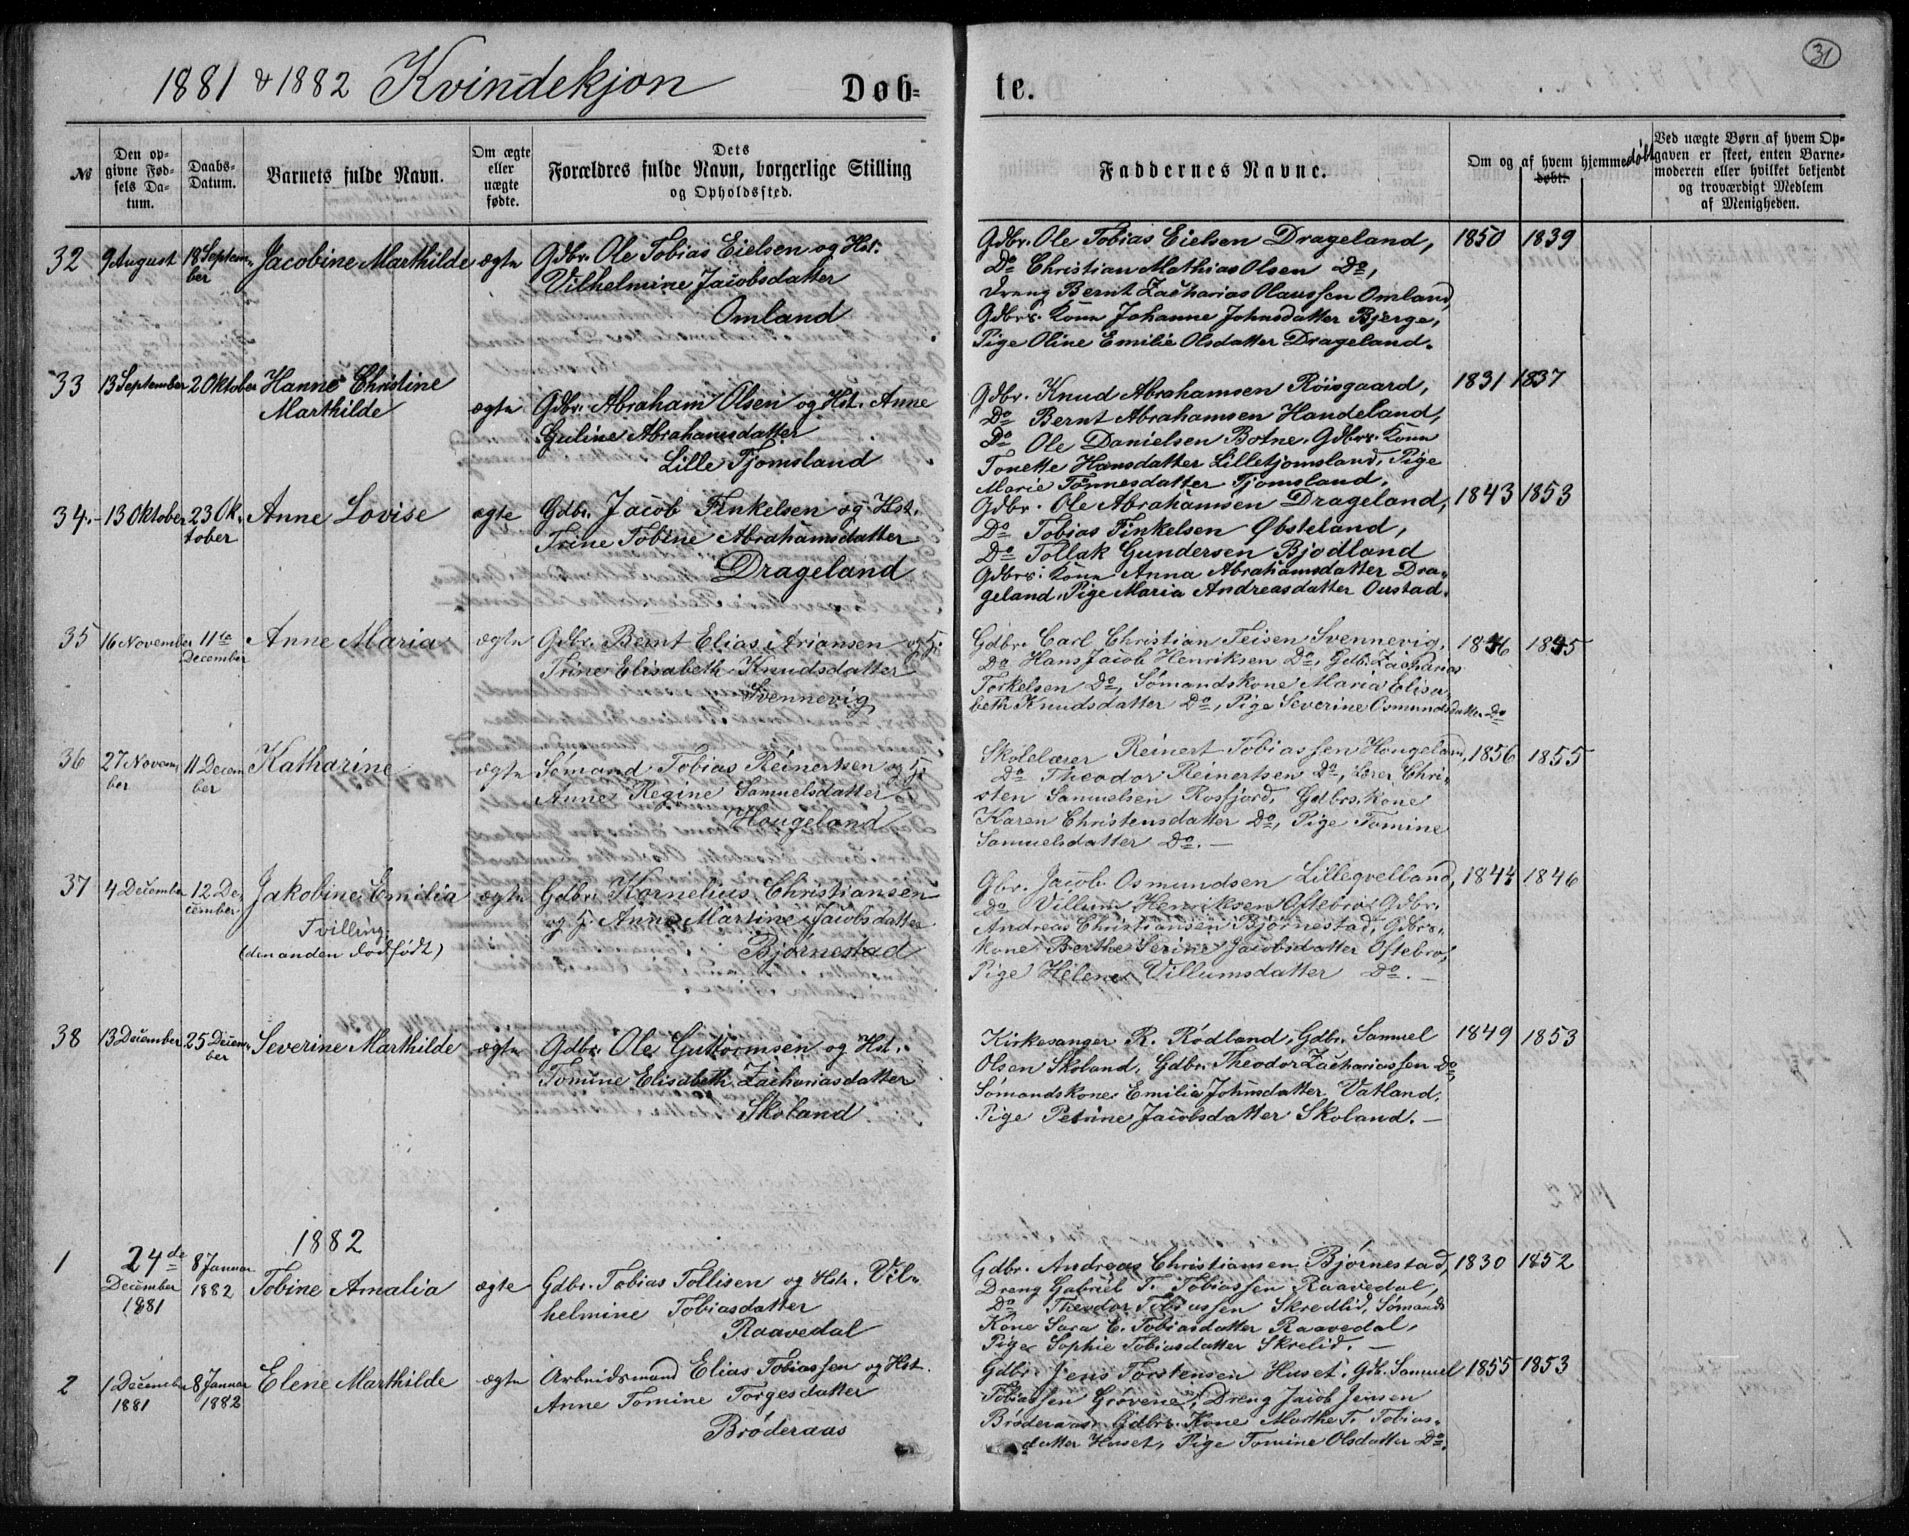 31
1881 & 1882 Kvindekjøn Døb-te.
№
Den op-
givne Fød-
sels Da-
tum.
Daabs-
Datum.
Barnets fulde Navn.
Om ægte
eller
uægte
fødte.
Dets
Forældres fulde Navn, borgerlige Stilling
og Opholdssted.
Faddernes Navne.
Om og af hvem hjemmedøbt
døbt.
Ved uægte Børn af hvem Op-
gaven er skeet, enten Barne-
moderen eller hvilket bekjendt
og troværdigt Medlem
af Menigheden.
32 9 August 18 Septem-
ber
Jacobine Marthilde ægte
Gdbr. Ole Tobias Eielsen og Hst.
Vilhelmine Jacobsdatter
Omland
Gdbr. Ole Tobias Eielsen Drageland, 1850 1839
Do Christian Mathias Olsen Do,
Dreng Bernt Zacharias Olaussen Omland,
Gdbrs. Kone Johanne Johnsdatter Bjerge,
Pige Oline Emilie Olsdatter Drageland.
33 13 September 2 Oktober Hanne Christine
Marthilde
ægte Gdbr. Abraham Olsen og Hst. Anne
Guline Abrahamsdatter
Lille Tjomsland
Gdbr. Knud Abrahamsen Röisgaard, 1831 1837
Do Bernt Abrahamsen Haudeland,
Do Ole Danielsen Botne, Gdbrs. Kone
Tonette Hansdatter Lilletjomsland, Pige
Marie Tönnesdatter Tjomsland.
34.- 13 Oktober 23 Ok-
tober
Anne Lovise ægte Gdbr. Jacob Finkelsen og Hst.
Trine Tobine Abrahamsdatter
Drageland
Gdbr. Ole Abrahamsen Drageland, 1843 1853
Do Tobias Finkelsen Øbsteland,
Do Tollak Gundersen Bjodland
Gdbrs. Kone Anna Abrahamsdatter Dra-
geland, Pige Maria Andreasdatter Oustad.
35 16 November 11te
December
Anne Maria ægte Gdbr. Bernt Elias Ariansen og H.
Trine Elisabeth Knudsdatter
Svennevig
Gdbr. Carl Christian Teisen Svennevig, 1846 1845
Do Hans Jacob Henriksen Do, Gdb. Zacharias
Torkelsen Do, Sømandskone Maria Elisa-
beth Knudsdatter Do, Pige Severine Osmundsdatter Do
36 27 Novem-
ber
11 Decem-
ber
Katharine ægte Sømand Tobias Reinertsen og H.
Anne Regine Samuelsdatter
Hougeland
Skolelærer Reinert Tobiassen Hougeland, 1856 1855
Do Theodor Reinertsen Do, Lærer Chri-
sten Samuelsen Rosfjord, Gdbrs. kone
Karen Christensdatter Do, Pige Tomine
Samuelsdatter Do. —
37 4 December 12 De-
cember
Jakobine Emilia
Tvilling
(den anden dødfødt)
ægte Gdbr. Kornelius Christiansen
og H. Anne Martine Jacobsdatter
Bjørnestad
Gbr. Jacob Osmundsen Lillegvelland, 1844 1846
Do Villum Henriksen Oftebro, Gdbr.
Andreas Christiansen Bjørnestad, Gdbrs.
kone Berthe Serine Jacobsdatter Oftebro,
Pige Helene Villumsdatter Do. —
38 13 December 25 Decem-
ber
Severine Marthilde ægte Gdbr. Ole Guttormsen og Hst.
Tomine Elisabeth Zachariasdatter
Skoland
Kirkesanger R. Rödland, Gdbr. Samuel 1849 1853
Olsen Skoland, Gdbr. Theodor Zachariassen Do,
Sømandskone Emilie Johnsdatter Vatland,
Pige Petrine Jacobsdatter Skoland. —
1882
1 24de
December
1881
8 Januar
1882
Tobine Amalia ægte Gdbr. Tobias Tollisen og Hst. Vil-
helmine Tobiasdatter
Raavedal
Gdbr. Andreas Christiansen Bjørnestad, 1830 1852
Dreng Gabriel T. Tobiassen Raavedal,
Do Theodor Tobiassen Skredlid, Sømands
Kone Sara E. Tobiasdatter Raavedal,
Pige Sophie Tobiasdatter Skrelid. —
2 1 December
1881
8 Januar
1882
Elene Marthilde ægte Arbeidsmand Elias Tobiassen og Hst.
Anne Tomine Torgesdatter
Brøderaas
Gdbr. Jens Torstensen Huset, Gdb. Samuel 1855 1853
Tobiassen Grövene, Dreng Jacob Jensen
Brøderaas, Gdbrs. Kone Marthe T. Tobias-
datter Huset, Pige Tomine Olsdatter Do.